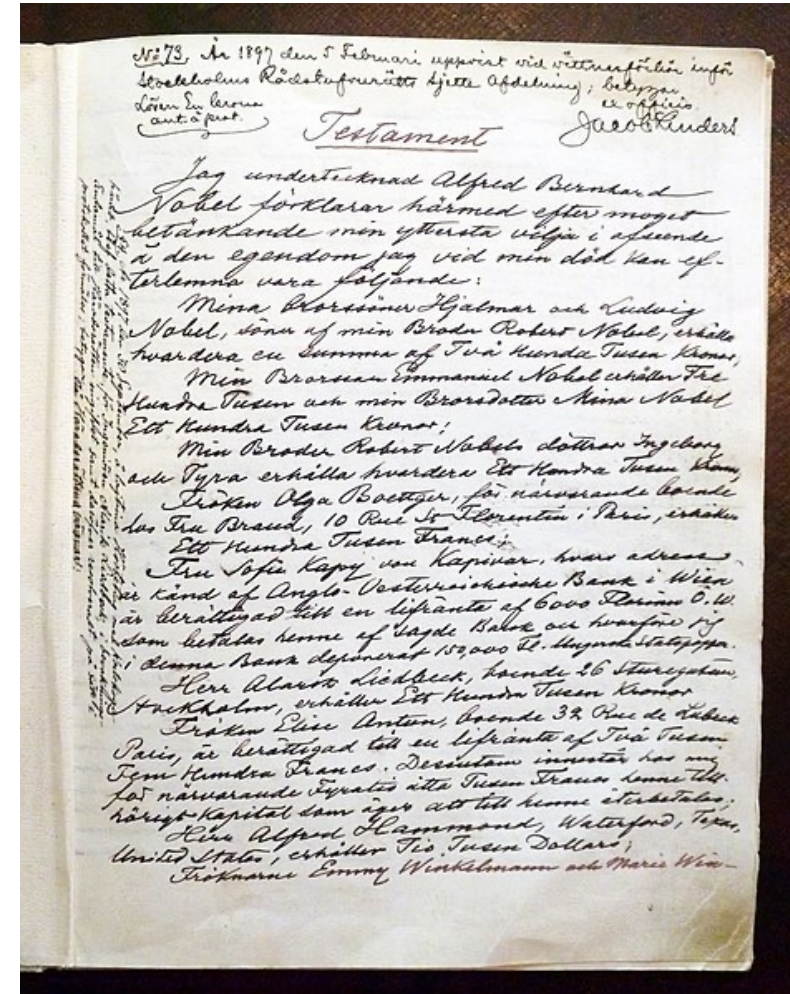 No 73. År 1897 den 5 Februari uppvist vid vittnesförhör inför
Stockholms Rådstufvurätts sjette Afdelning; betygar
Lösen En krona
ex officio.
ant. à prot.
Jacob Linders
Testament
Jag undertecknad Alfred Bernhard
Nobel förklarar härmed efter moget
betänkande min yttersta vilja i afseende
å den egendom jag vid min död kan ef-
terlemna vara följande:
Mina brorssöner Hjalmar och Ludvig
Nobel, söner af min Broder Robert Nobel, erhålla
hvardera en summa af Två Hundra Tusen Kronor,
Min Brorson Emmanuel Nobel erhåller Tre
Hundra Tusen och min Brorsdotter Mina Nobel
Ett Hundra Tusen Kronor;
Min Broder Robert Nobels döttrar Ingeborg
och Tyra erhålla hvardera Ett Hundra Tusen Kronor
Fröken Olga Boettger, för närvarande boende
hos Fru Brand, 10 Rue St Florentin i Paris, erhåller
Ett Hundra Tusen Francs;
Fru Sofie Kapy von Kapivar, hvars adress
är känd af Anglo-Oesterreichische Bank i Wien
är berättigad till en lifränta af 6000 Florins Ö.W.
som betalas henne af sagde Bank och hvarföre jag
i denna Bank deponerat 150,000 Fl. i Ungerska Statspapper.
Herr Alarik Liedbeck, boende 26 Sturegatan,
Stockholm, erhåller Ett Hundra Tusen Kronor
Fröken Elise Antun, boende 32 Rue de Lubeck
Paris, är berättigad till en lifränta af Två Tusen
Fem Hundra Francs. Desutom innestår hos mig
för närvarande Fyratio åtta Tusen Francs henne till-
hörigt Kapital som äger att till henne återbetalas;
Herr Alfred Hammond, Waterford, Texas,
United States, erhåller Tio Tusen Dollars;
Fröknarne Emmy Winkelmann och Marie Win-